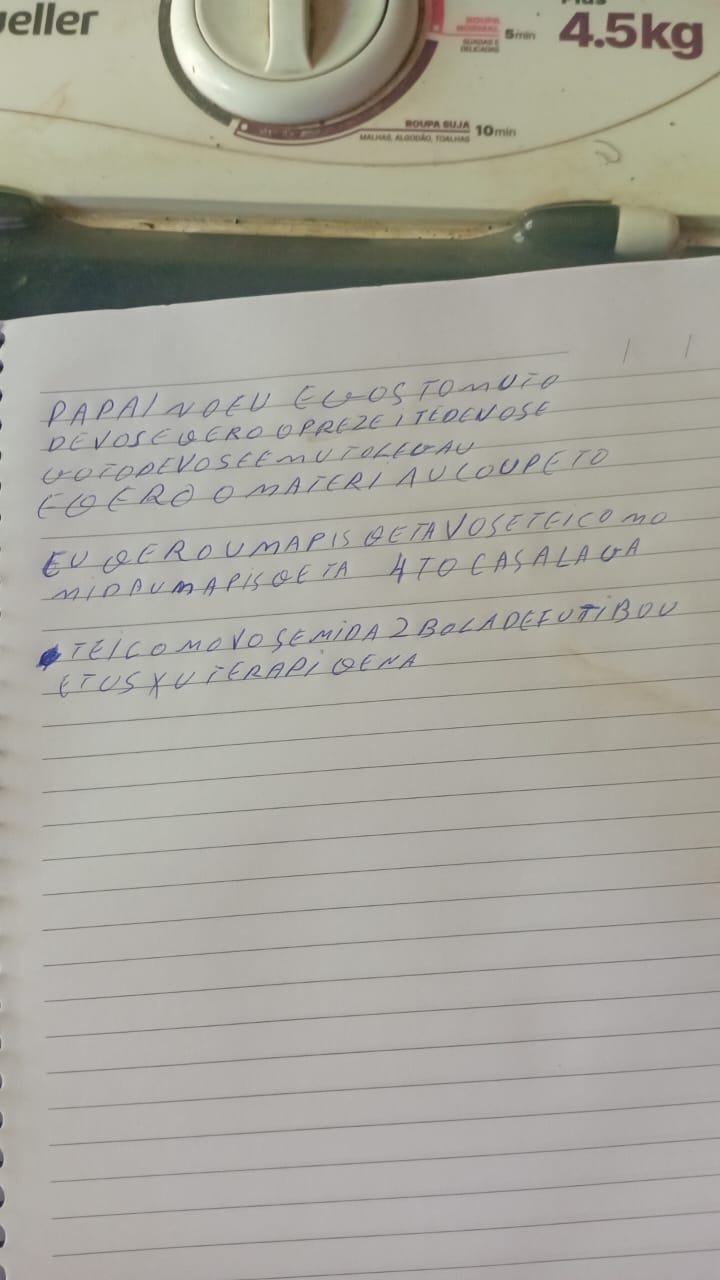 eller
Plus
4.5kg
ROUPA
NORMAL
SUADAS E
DELICADAS
5min
ROUPA SUJA
MALHAS, ALGODÃO, TOALHAS
10min
PAPAI NOEU EGOSTOMUTO
DEVOSEQEROOPREZEITEDENOSE
GOTODEVOSEEMUTOLEGAU
EQERO O MATERIAUCOUPETO
EU QEROUMAPISQETAVOSETEICOMO
MIDAUMAPISQETA 4TOCASALAGA
TEICOMOVOSEMIDA2BOLADEFUTIBOU
ETUSXUTERAPIQENA